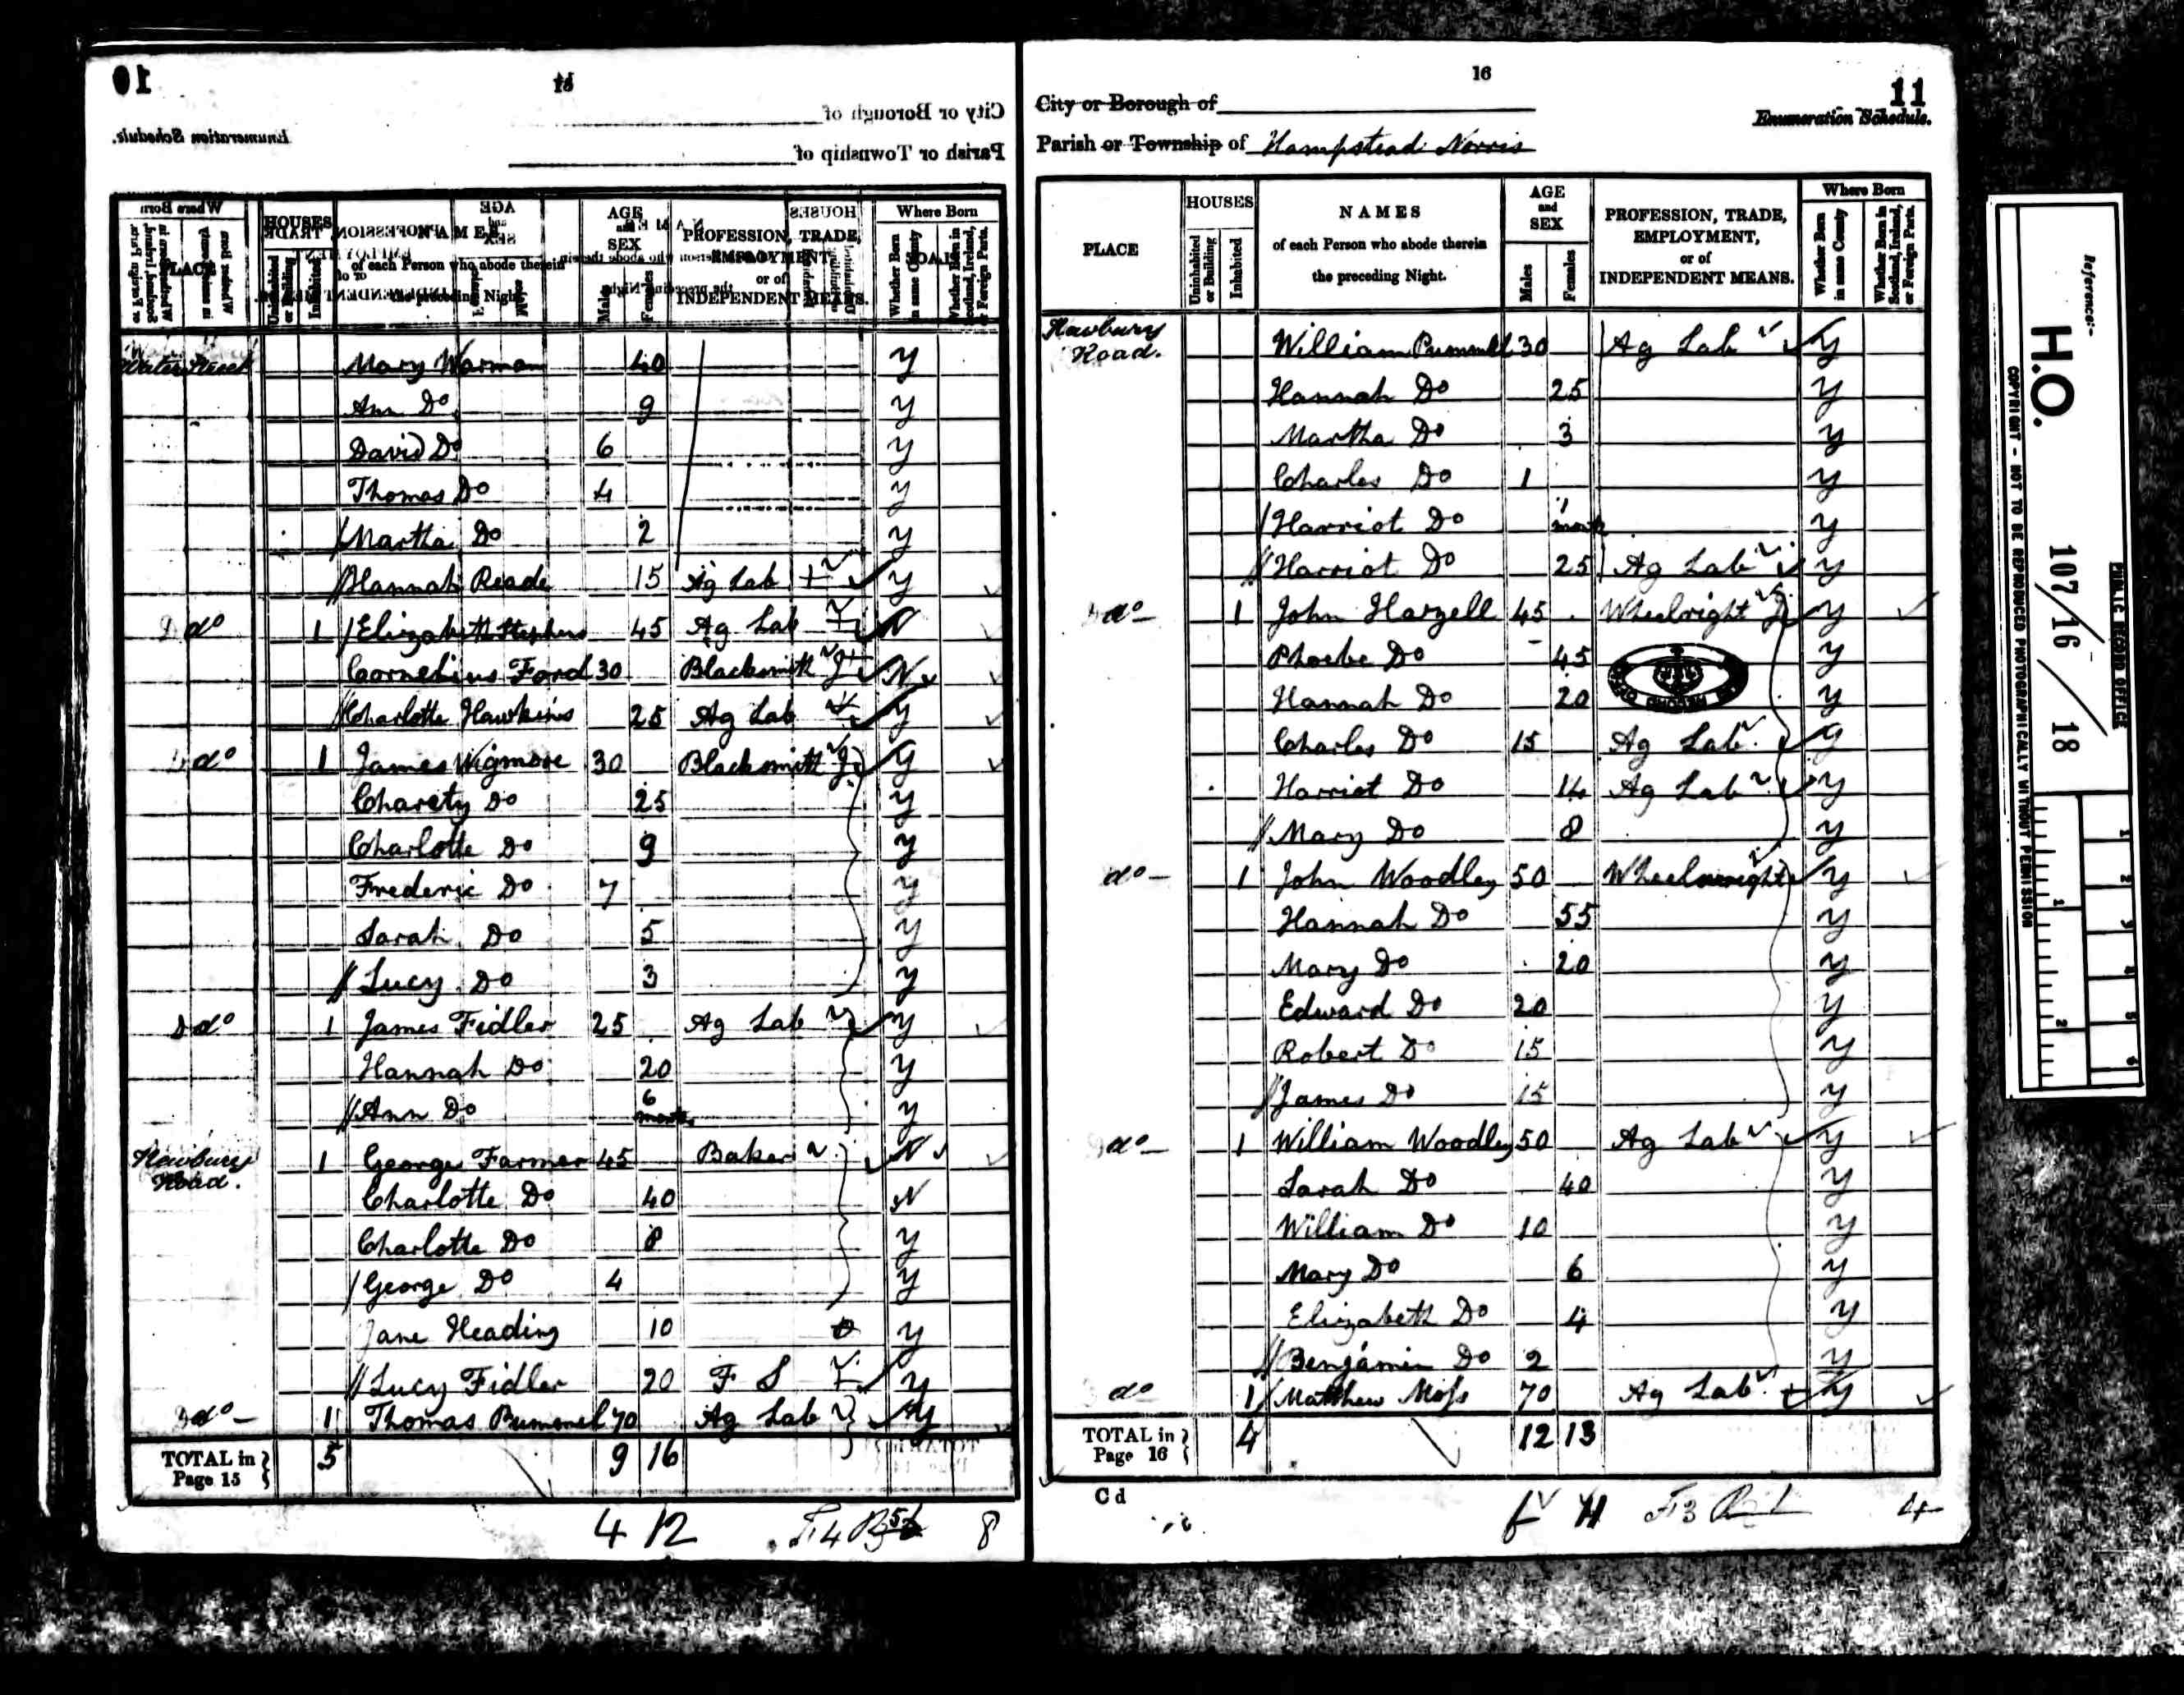 16
11
City or Borough of
Enumeration Schedule.
Parish or Township of Hampstead Norris
HOUSES
NAMES
of each Person who abode therein
the preceding Night.
AGE and SEX
Males
Females
PROFESSION, TRADE,
EMPLOYMENT,
or of
INDEPENDENT MEANS.
Where Born
Whether Born in same County
Whether Born in Scotland, Ireland, or Foreign Parts.
Water Street Mary Warman 40 y
Ann Do 9 y
David Do 6 y
Thomas Do 4 y
Martha Do 2 y
Hannah Reade 15 Ag Lab y
do 1 Elizabeth Stephens 45 Ag Lab N
Cornelius Ford 30 Blacksmith J N
Charlotte Hawkins 25 Ag Lab y
do 1 James Wigmore 30 Blacksmith J y
Charety Do 25 y
Charlotte Do 9 y
Frederic Do 7 y
Sarah Do 5 y
Lucy Do 3 y
do 1 James Fidler 25 Ag Lab y
Hannah Do 20 y
Ann Do 6 months y
Newbury Road. 1 George Farmer 45 Baker N
Charlotte Do 40 N
Charlotte Do 8 y
George Do 4 y
Jane Heading 10 y
Lucy Fidler 20 F S y
do 1 Thomas Pummel 70 Ag Lab y
TOTAL in Page 15 5 9 16
4 12
8
PLACE
HOUSES
Uninhabited or Building
Inhabited
NAMES
of each Person who abode therein
the preceding Night.
AGE and SEX
Males
Females
PROFESSION, TRADE,
EMPLOYMENT,
or of
INDEPENDENT MEANS.
Where Born
Whether Born in same County
Whether Born in Scotland, Ireland, or Foreign Parts.
Newbury Road. William Pummel 30 Ag Lab y
Hannah Do 25 y
Martha Do 3 y
Charles Do 1 y
Harriot Do 1 month y
Harriot Do 25 Ag Lab y
do 1 John Hazell 45 Wheelright J y
Phoebe Do 45 y
Hannah Do 20 y
Charles Do 15 Ag Lab y
Harriot Do 14 Ag Lab y
Mary Do 8 y
do 1 John Woodley 50 Wheelwright y
Hannah Do 55 y
Mary Do 20 y
Edward Do 20 y
Robert Do 15 y
James Do 15 y
do 1 William Woodley 50 Ag Lab y
Sarah Do 40 y
William Do 10 y
Mary Do 6 y
Elizabeth Do 4 y
Benjamin Do 2 y
do 1 Matthew Moss 70 Ag Lab y
TOTAL in Page 16 4 12 13
C d
4
Reference:-
H.O. 107/16/18
PUBLIC RECORD OFFICE
COPYRIGHT - NOT TO BE REPRODUCED PHOTOGRAPHICALLY WITHOUT PERMISSION